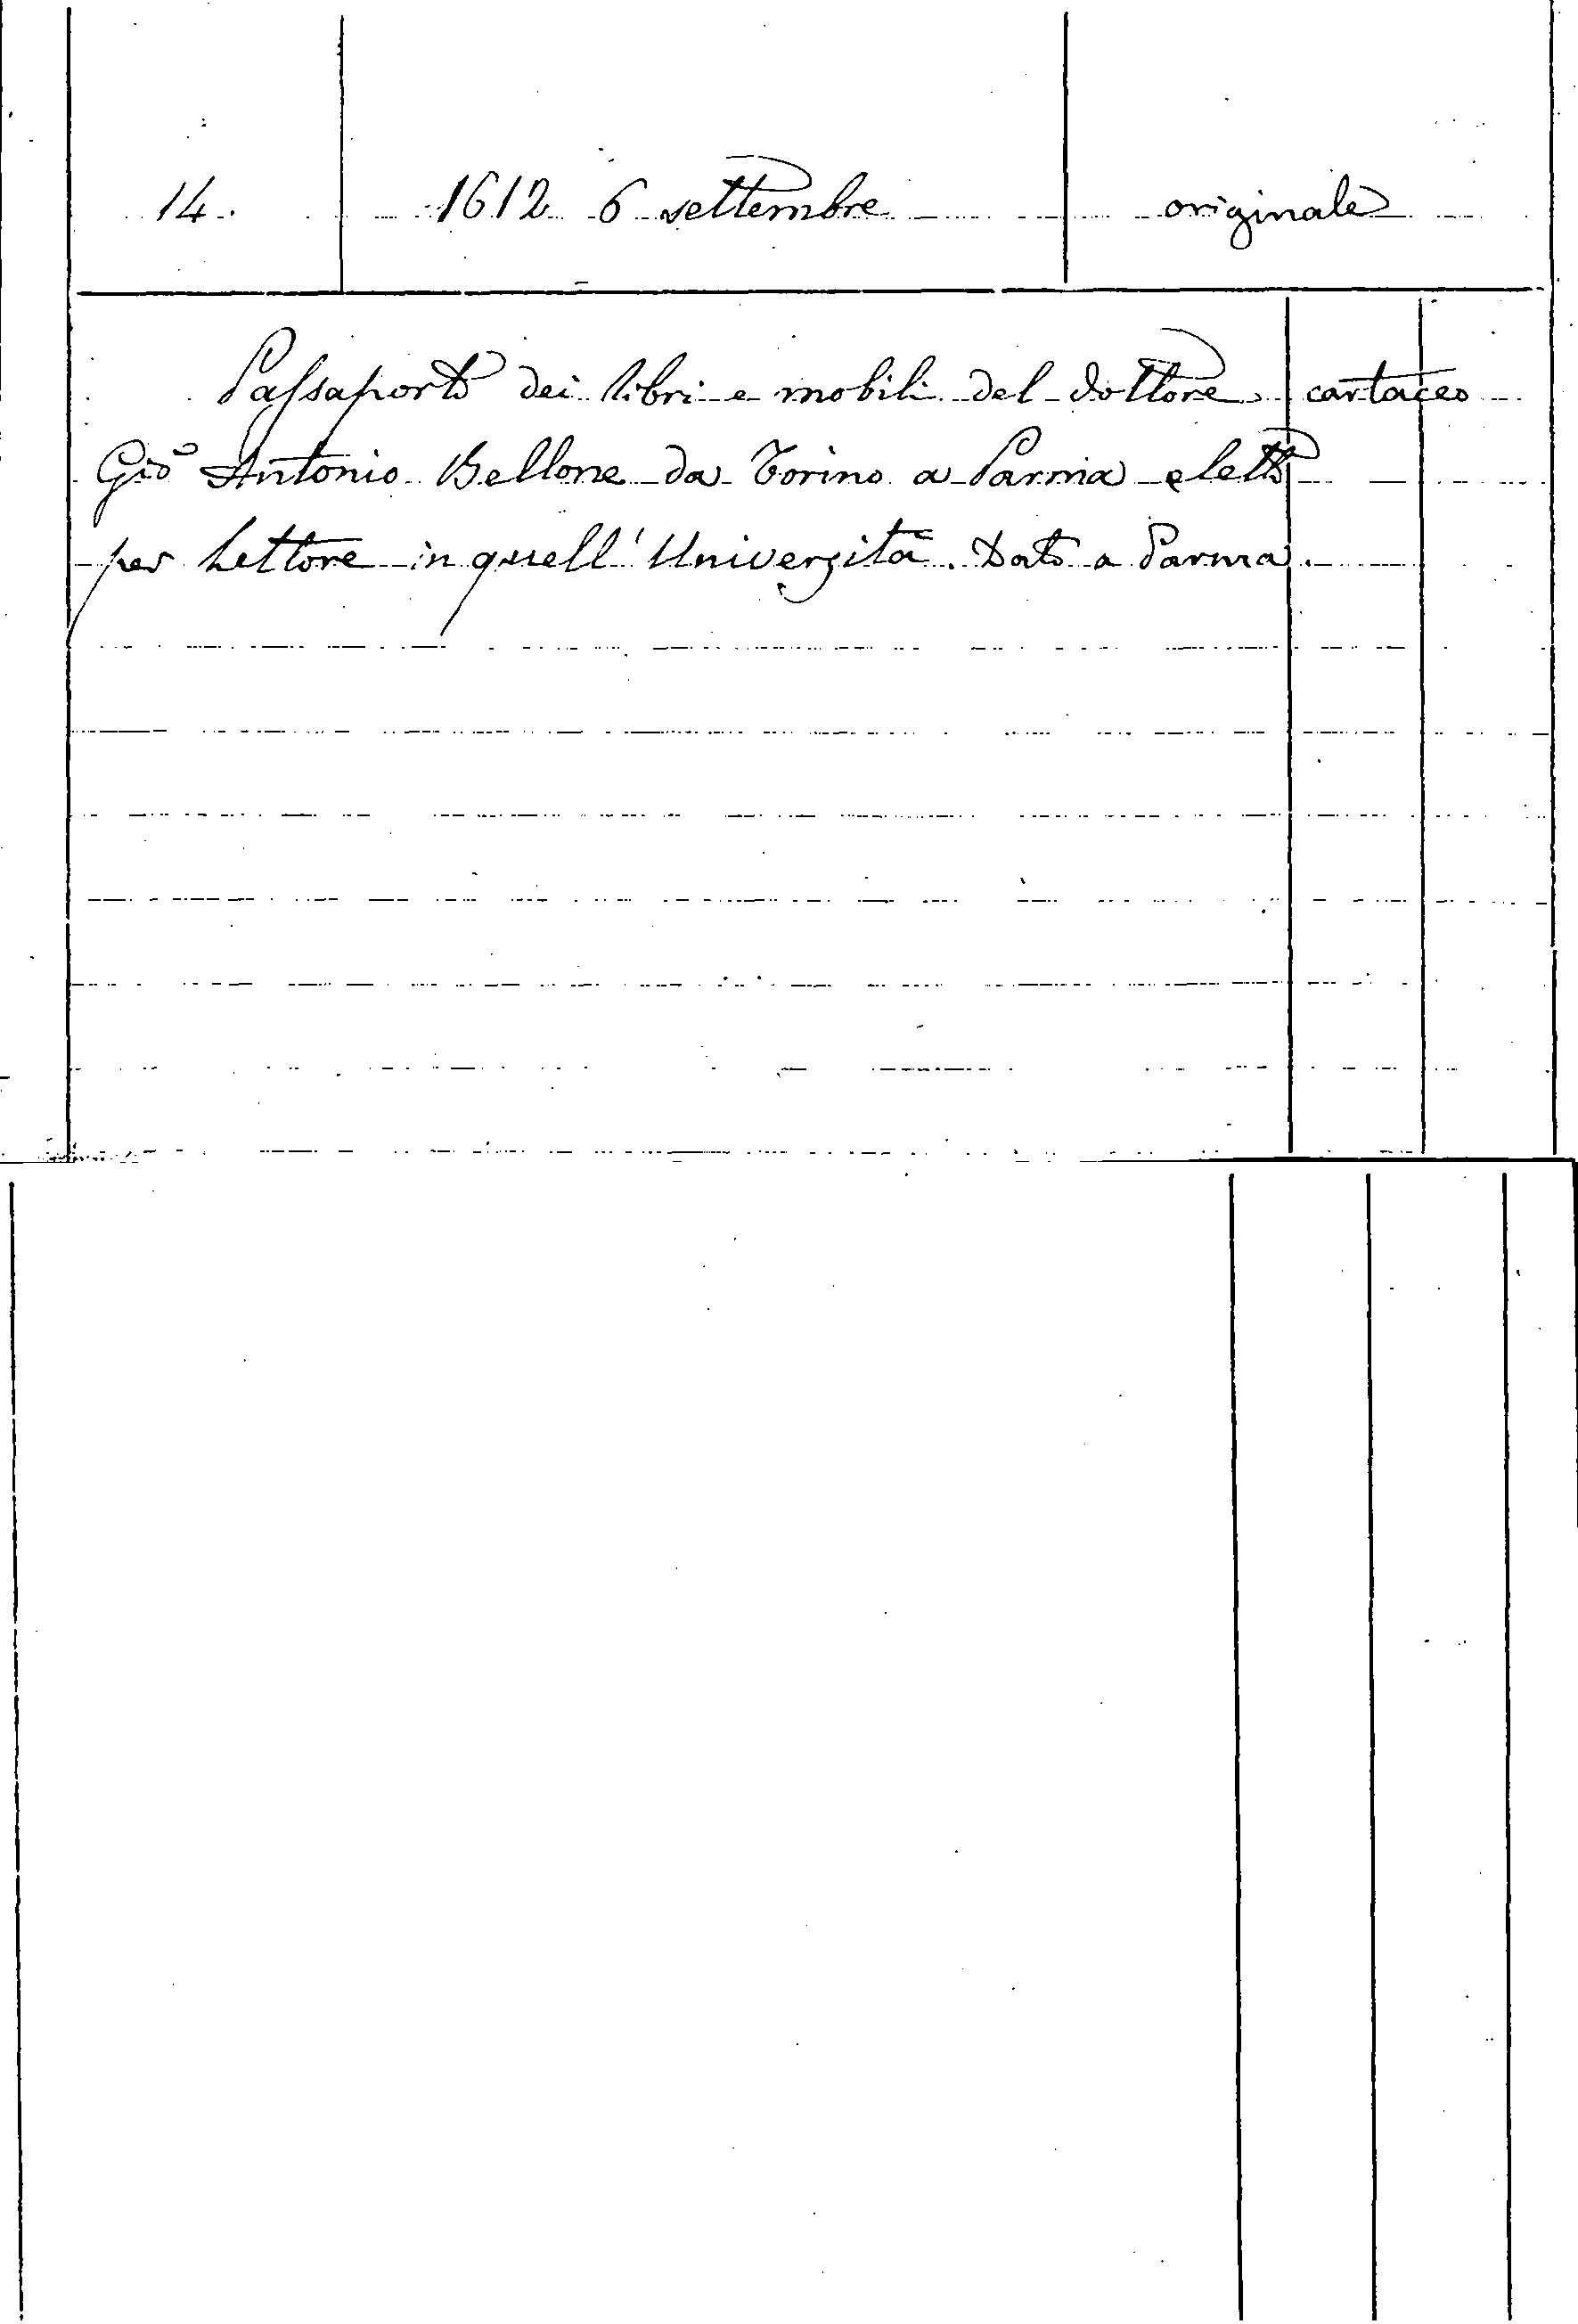 14. 1612 6 settembre originale
Passaporto dei libri e mobili del dottore cartaceo
Gio Antonio Bellone da Torino a Parma eletto
per Lettore in quell' Università. Dato a Parma.